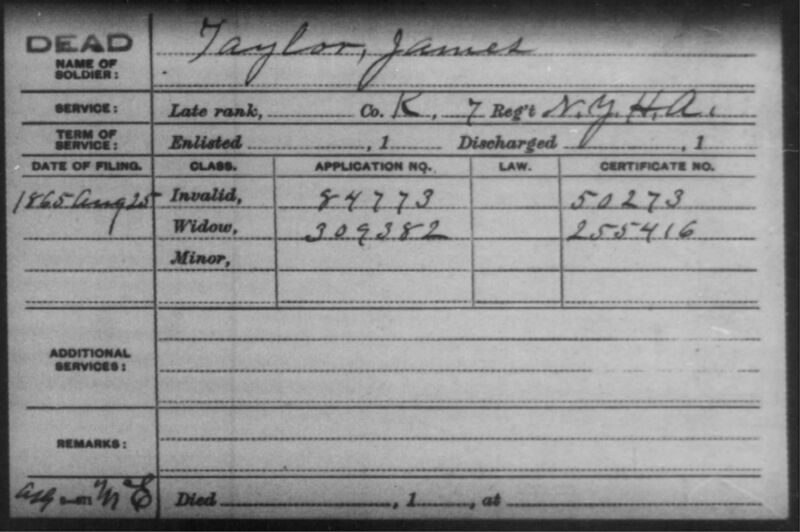 DEAD
NAME OF SOLDIER: Taylor, James
SERVICE: Late rank, Co. K, 7 Reg't N.Y.H.A.
TERM OF SERVICE: Enlisted , 1 Discharged , 1
DATE OF FILING. CLASS. APPLICATION NO. LAW. CERTIFICATE NO.
1865 Aug 25 Invalid, 84773 50273
Widow, 309382 255416
Minor,
ADDITIONAL SERVICES:
REMARKS:
Died , 1 , at